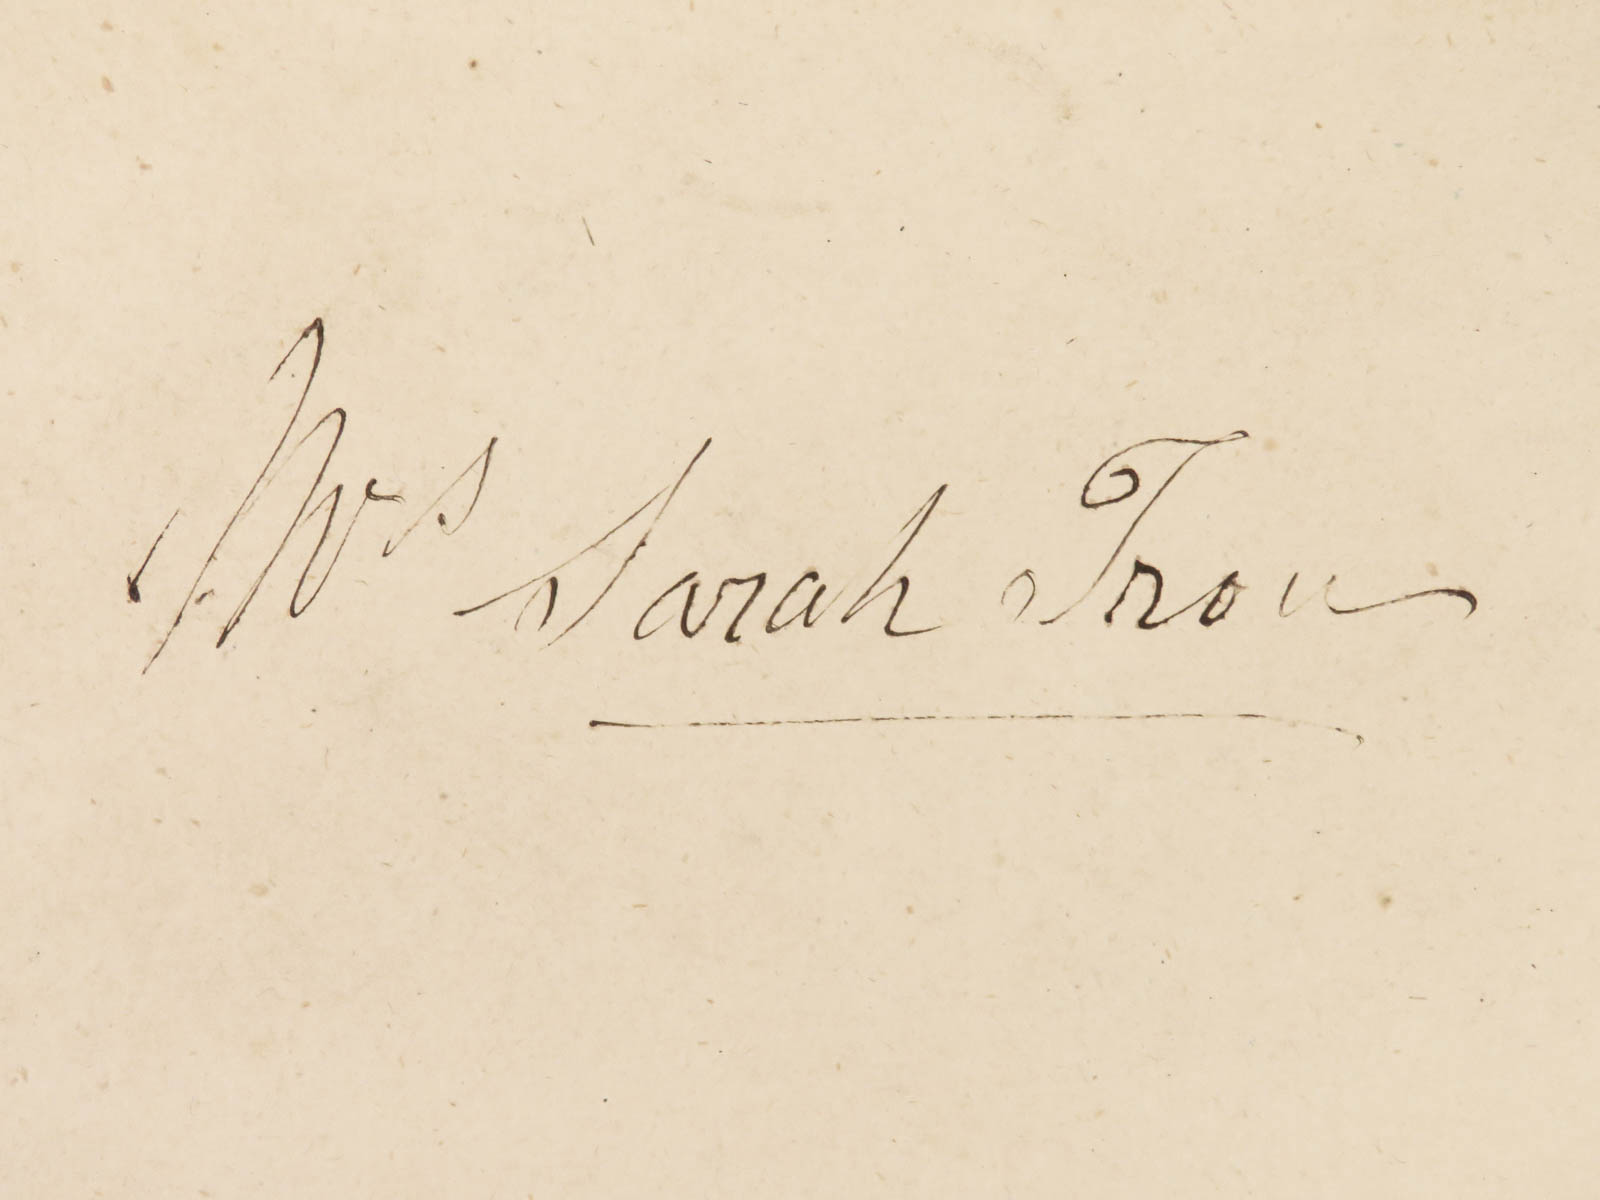 Mrs Sarah Trow